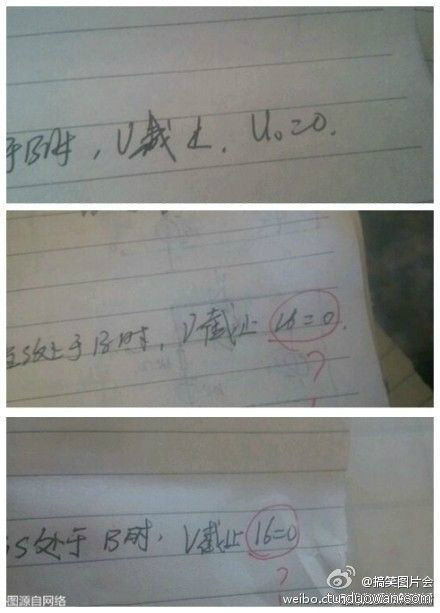 于B时,V截止,U₀=0.
当S处于B时,V截止 16=0.
?
S处于B时,V截止 16=0
?
图源自网络
@搞笑图片会
weibo.com/duowan